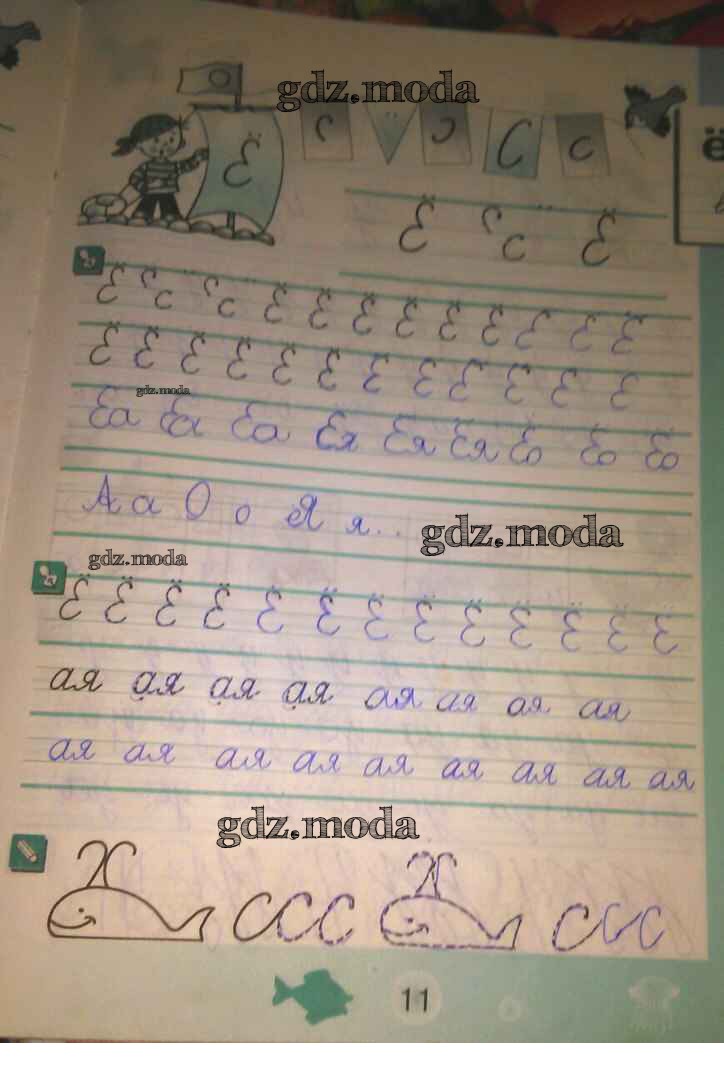 gdz.moda
Ё С С
ё
Ё Ё
Ё Ё Ё Ё Ё Ё Ё Ё Ё Ё
Ё Ё Ё Ё Ё Ё Ё Ё Ё Ё Ё Ё
gdz.moda
Ёа Ёа Ёа Ёя Ёя Ёя Ёо Ёо Ёо
А а О о Я я . .
gdz.moda
gdz.moda
Ё Ё Ё Ё Ё Ё Ё Ё Ё Ё Ё Ё Ё
ая ая ая ая ая ая ая ая
ая ая ая ая ая ая ая ая ая
gdz.moda
ССС ССС
11